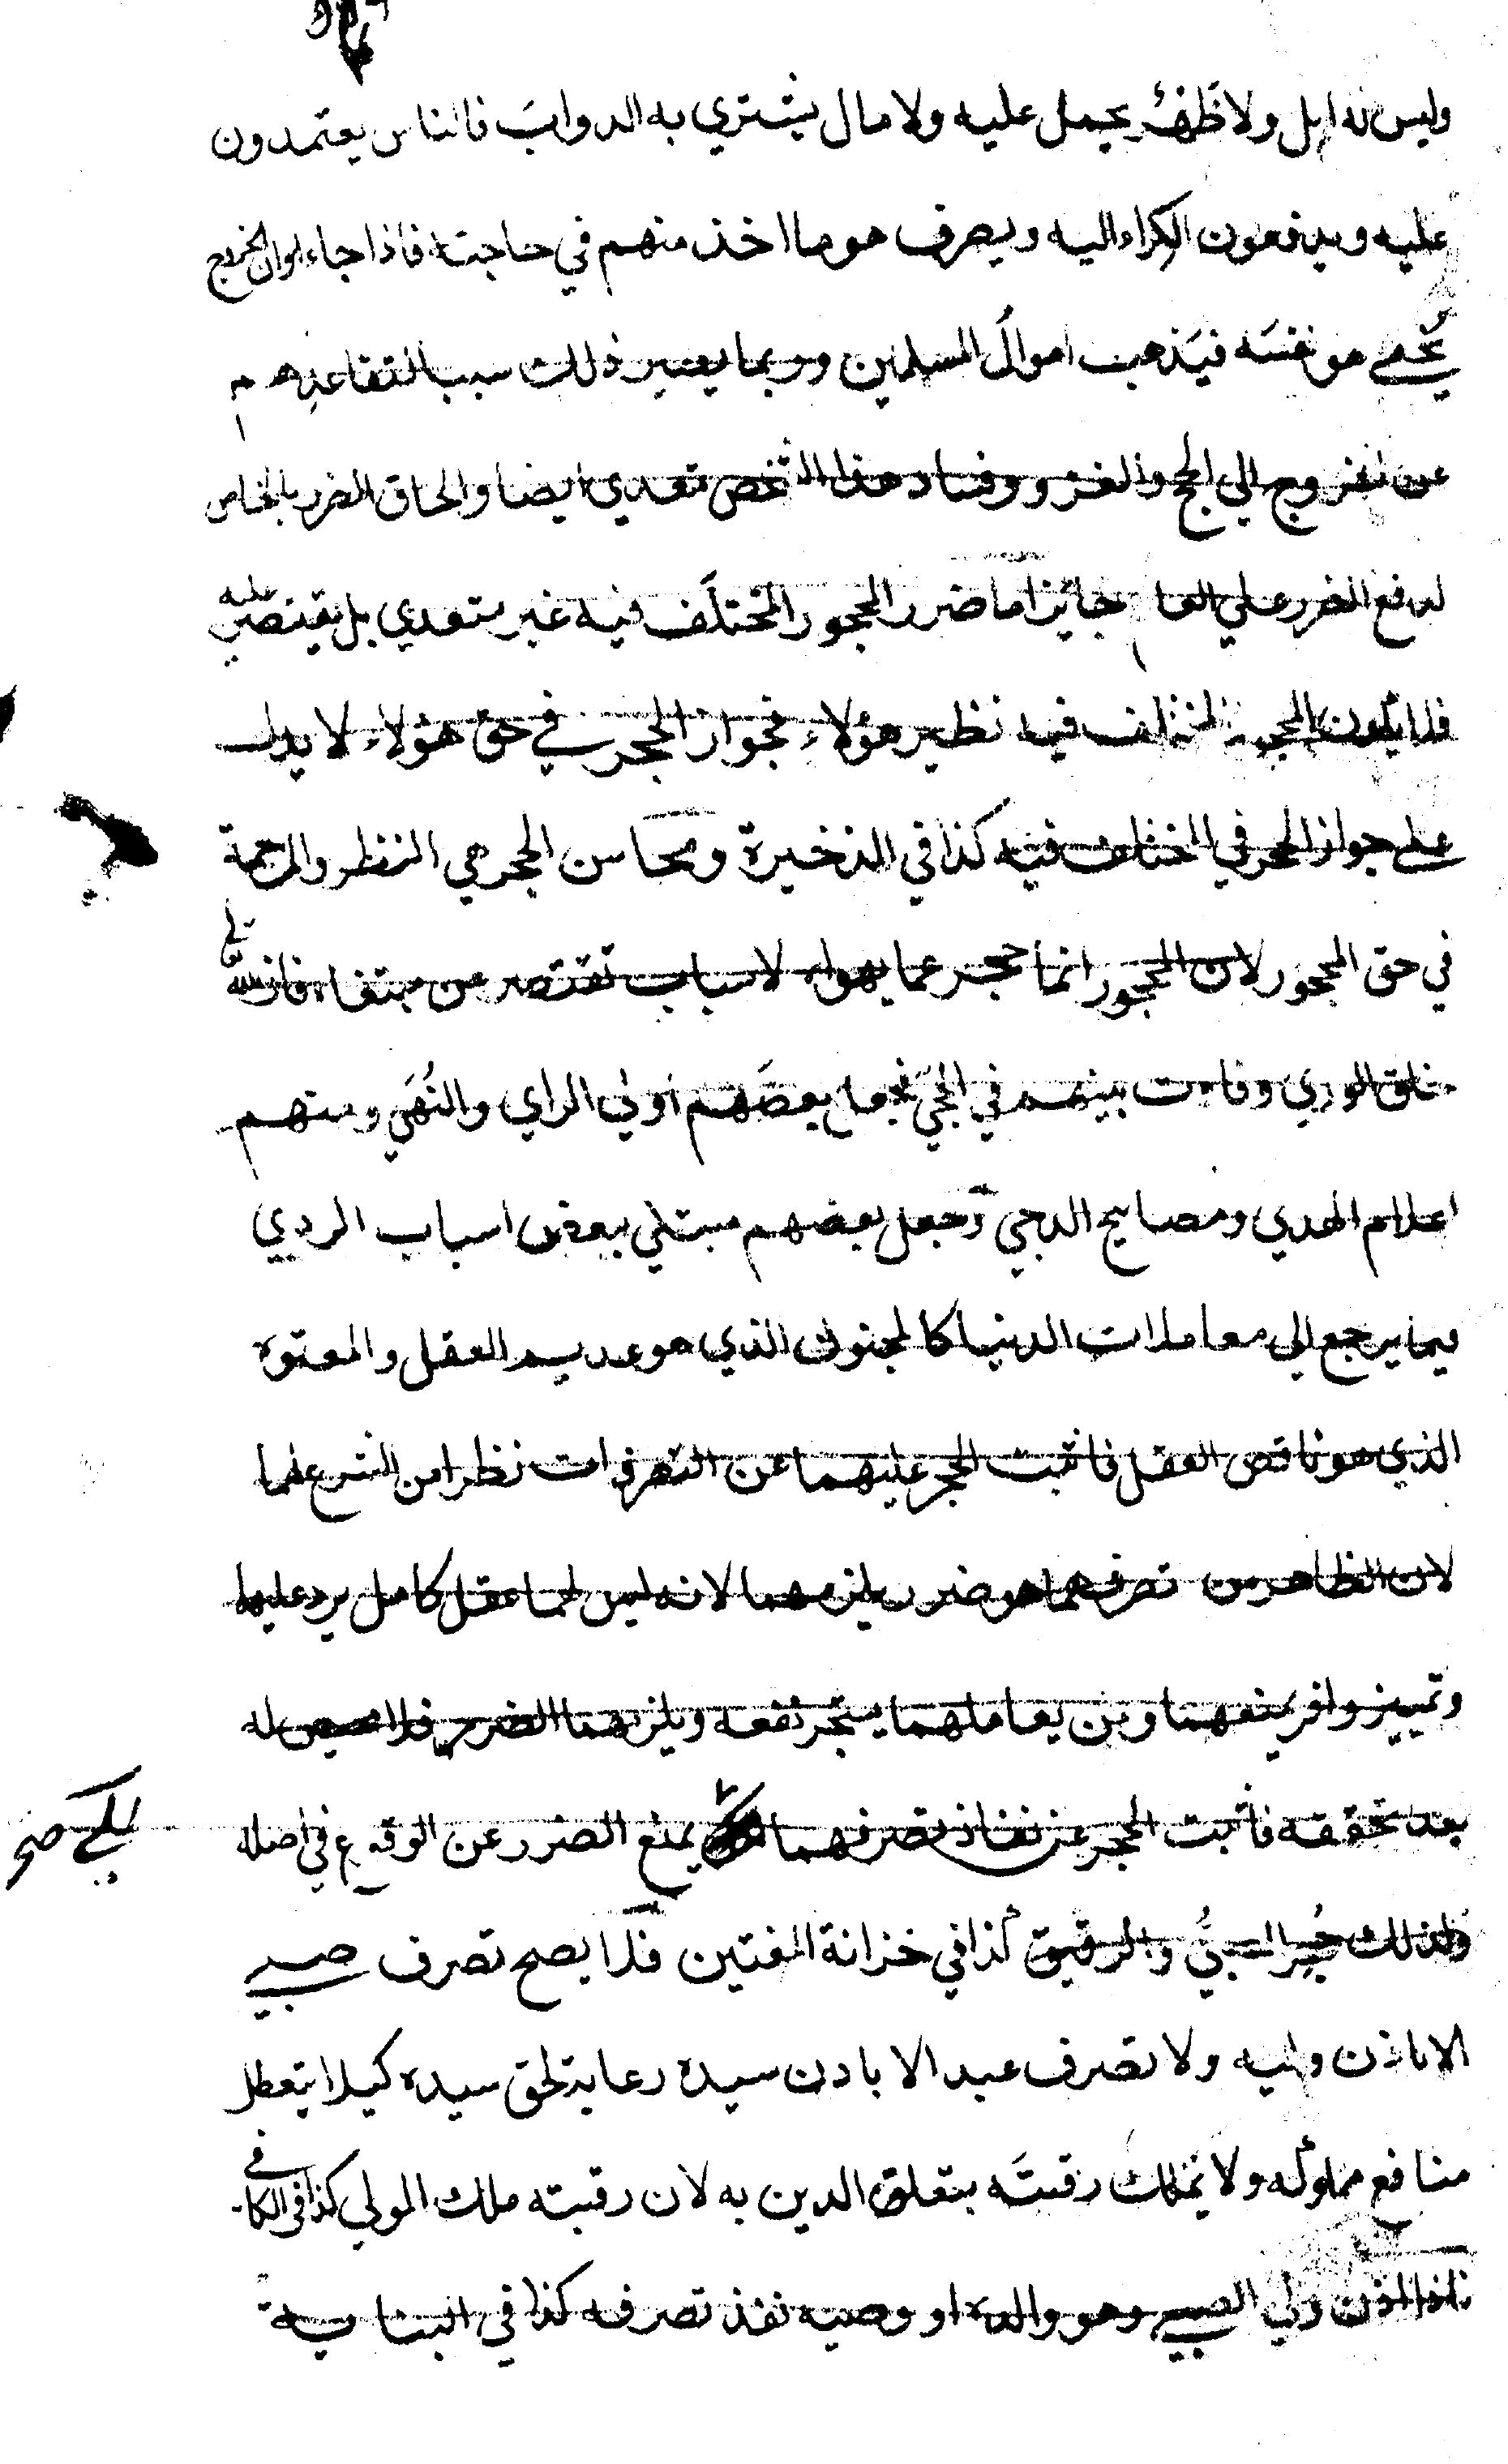 وليس له ابل ولا ظهر يحمل عليه ولا مال يشتري به الدوابَ فالناس يعتمدون
عليه ويدفعون الكراء اليه ويصرف هو ما اخذ منهم في حاجته فاذا جاء اوان الخروج
يخفي هو نفسَه فيَذهب اموالُ المسلمين وربما يصير ذلك سببا لتقاعدهم
عن الخروج الي الحج والغزو وفساد هذا الشخص متعدي ايضا والحاق الضرر بالخاص
لدفع الضرر علي العام جائز اما ضرر المحجور المختلَف فيه غير متعدي بل يقتصر عليه
فلا يكون المحجور المختلف فيه نظير هؤلاء فجواز الحجر في حق هؤلاء لا يدل
علي جواز الحجر في المختلف فيه كذا في الذخيرة ومحاسن الحجر هي النظر والرحمة
في حق المحجور لان المحجور انما حجر عما يهواه لاسباب تقتصر عن مبتغاه فان الله تع
خلق الوري وفاوت بينهم في الحجي فجعل بعضَهم اولي الراي والنُهَي ومنهم
اعلام الهدي ومصابيح الدجي وجعل بعضهم مبتلي ببعض اسباب الردي
فيما يرجع الي معاملات الدنيا كالمجنون الذي هو عديم العقل والمعتوه
الذي هو ناقص العقل فاثبت الحجر عليهما عن التصرفات نظرا من الشرع عليهما
لان الظاهر من تصرفهما هو ضرر يلزمهما لانه ليس لهما عقل كامل يرد عليهما
وتمييز وافر يمنعهما ومن يعاملهما يستجر نفعه ويلزمهما الضرر فلا محيص له
بعد تحققه فاثبت الحجر عن نفاذ تصرفهما يمنع الضرر عن الوقوع في اصله
لكي صح
ولذلك حُجر الصبيُّ والرقيق كذا في خزانة المفتين فلا يصح تصرف صبي
الا باذن وليه ولا تصرف عبد الا باذن سيده رعاية لحق سيده كيلا يتعطل
منافع مملوكه ولا تملك رقبتَه بتعلق الدين به لان رقبته ملك المولي كذا في الكافي
فاذا اذن ولي الصبي وهو والده او وصيه نفذ تصرفه كذا في البناية